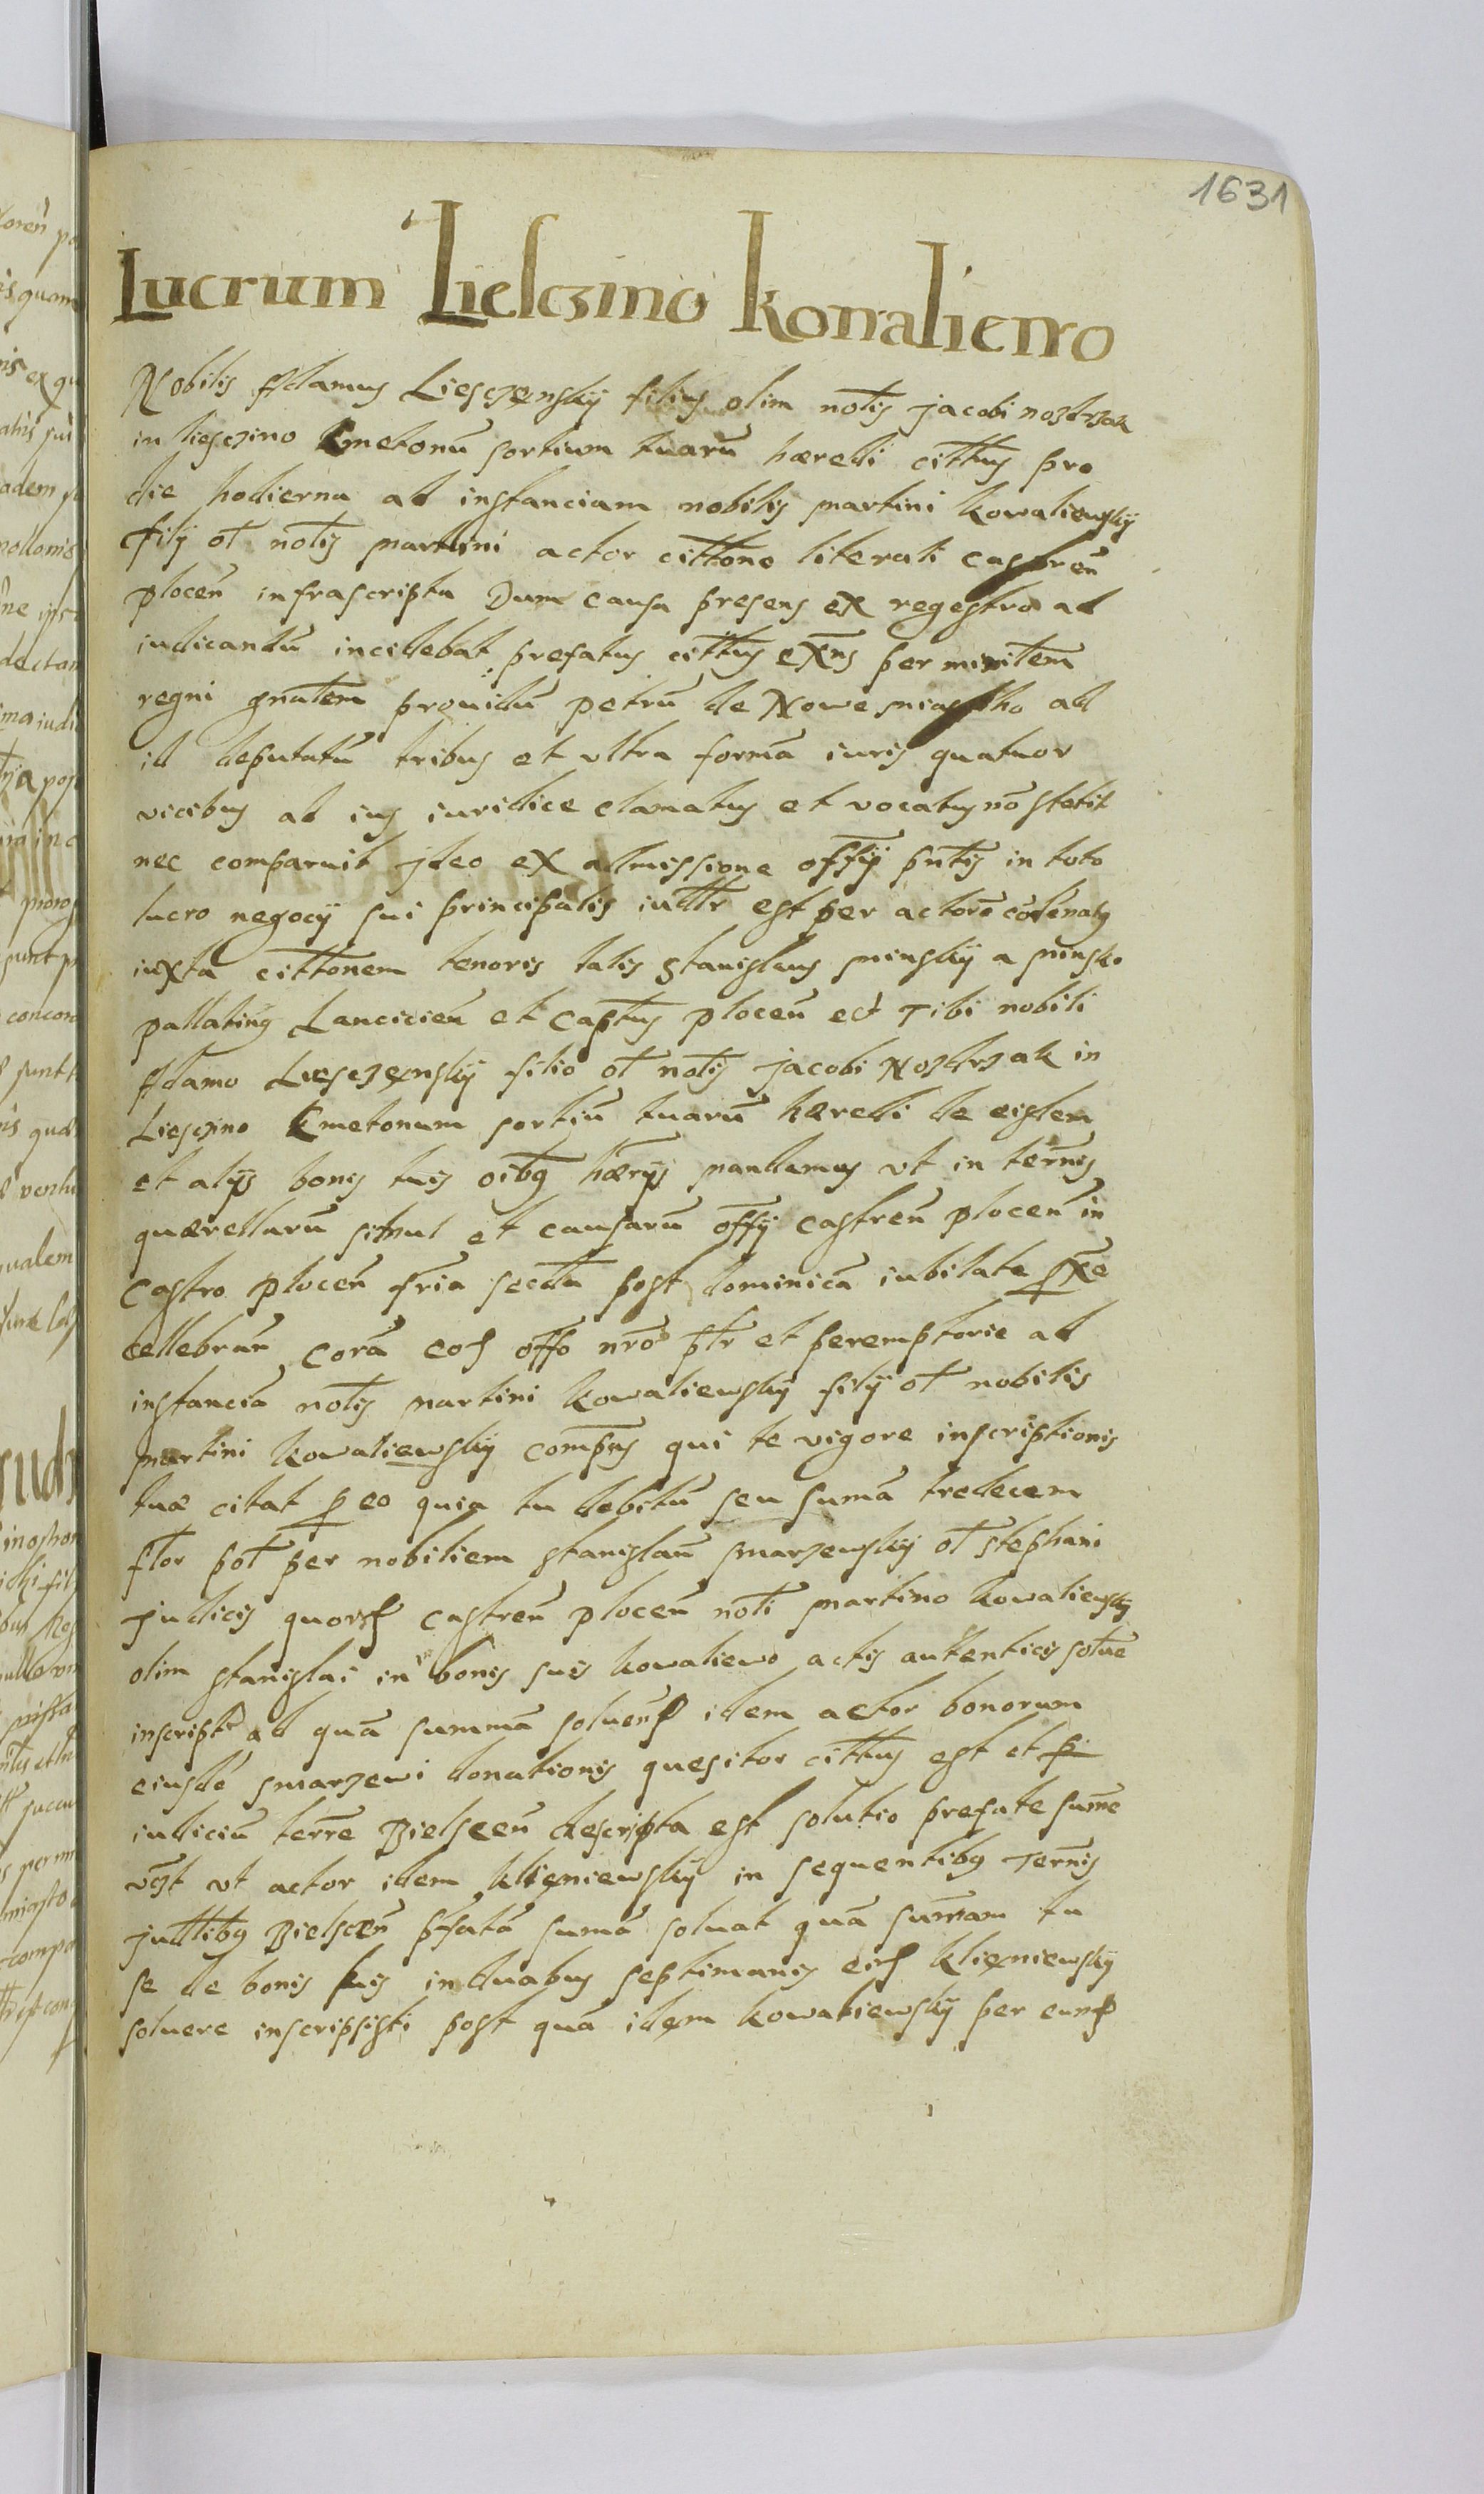 1631
Lucrum Lielczino Kowaliewo
Nobilis Adamus Liesczęnskÿ filius olim notis jacobi noztrzak
in liesczino kmetonũ sortium tuarũ hæredi cittus pro
die hodierna ad instanciam nobilis martini kowaliewskÿ
filÿ ol notis martini actor cittone literali castreñ
ploceñ infrascripta Dum causa presens ex regestro ad
iudicandũ incidebat prefatus cittus exñs per minitem
regni gnalem prouidũ petrũ de Nowe miastho ad
id deputatũ tribus et vltra formã iuris quatuor
vicibus ad ius iuridice clamatus et vocatus nõ stetit
nec comparuit jdeo ex admissione offÿ pñtis in toto
lucro negocÿ sui principalis iudtr est per actorẽ cõdẽnatg
iuxta cittonem tenoris talis Stanislaus minskÿ a minsko
pallatinus Lancicieñ et Captus ploceñ ect Tibi nobili
Adamo Liesczęnskÿ filio ol notis jacobi Noztrzak in
Liesczino kmetonum sortiũ tuarũ hæredi de eisdem
et alÿs bonis tuis oibg hærÿs mandamus vt in terñis
quærellarũ simul et causarũ offÿ castreñ ploceñ in
Castro ploceñ fria secda post dominicã iubilate pxe
cellebrañ corã eod offo nro ptr et peremptorie ad
instanciã notis martini kowaliewskÿ filÿ ol nobilis
martini kowaliewskÿ comprs qui te vigore inscriptionis
tuæ citat p eo quia tu debitũ seu sumã tredecem
flor pol per nobiliem stanislaũ smarzewskÿ ol stephani
judicis quorũd castreñ ploceñ noti martino kowaliewskÿ
olim stanislai in bonis suis kowaliewo actis autenticis soluẽ
inscript ad quã summã soluend idem actor bonorum
eiusdẽ smarzewi donationis quesitor cittus est et p
iudiciũ terre Bielsceñ descripta est solutio prefate sume
vt actor idem klięniewskÿ in sequentibg Terñis
judtibg Bielsceñ pfatã sumã soluat quã summam tu
se de bonis tuis in duabus septimanis eid klięniewskÿ
soluere inscripsisti post quã idem kowaliewskÿ per eund